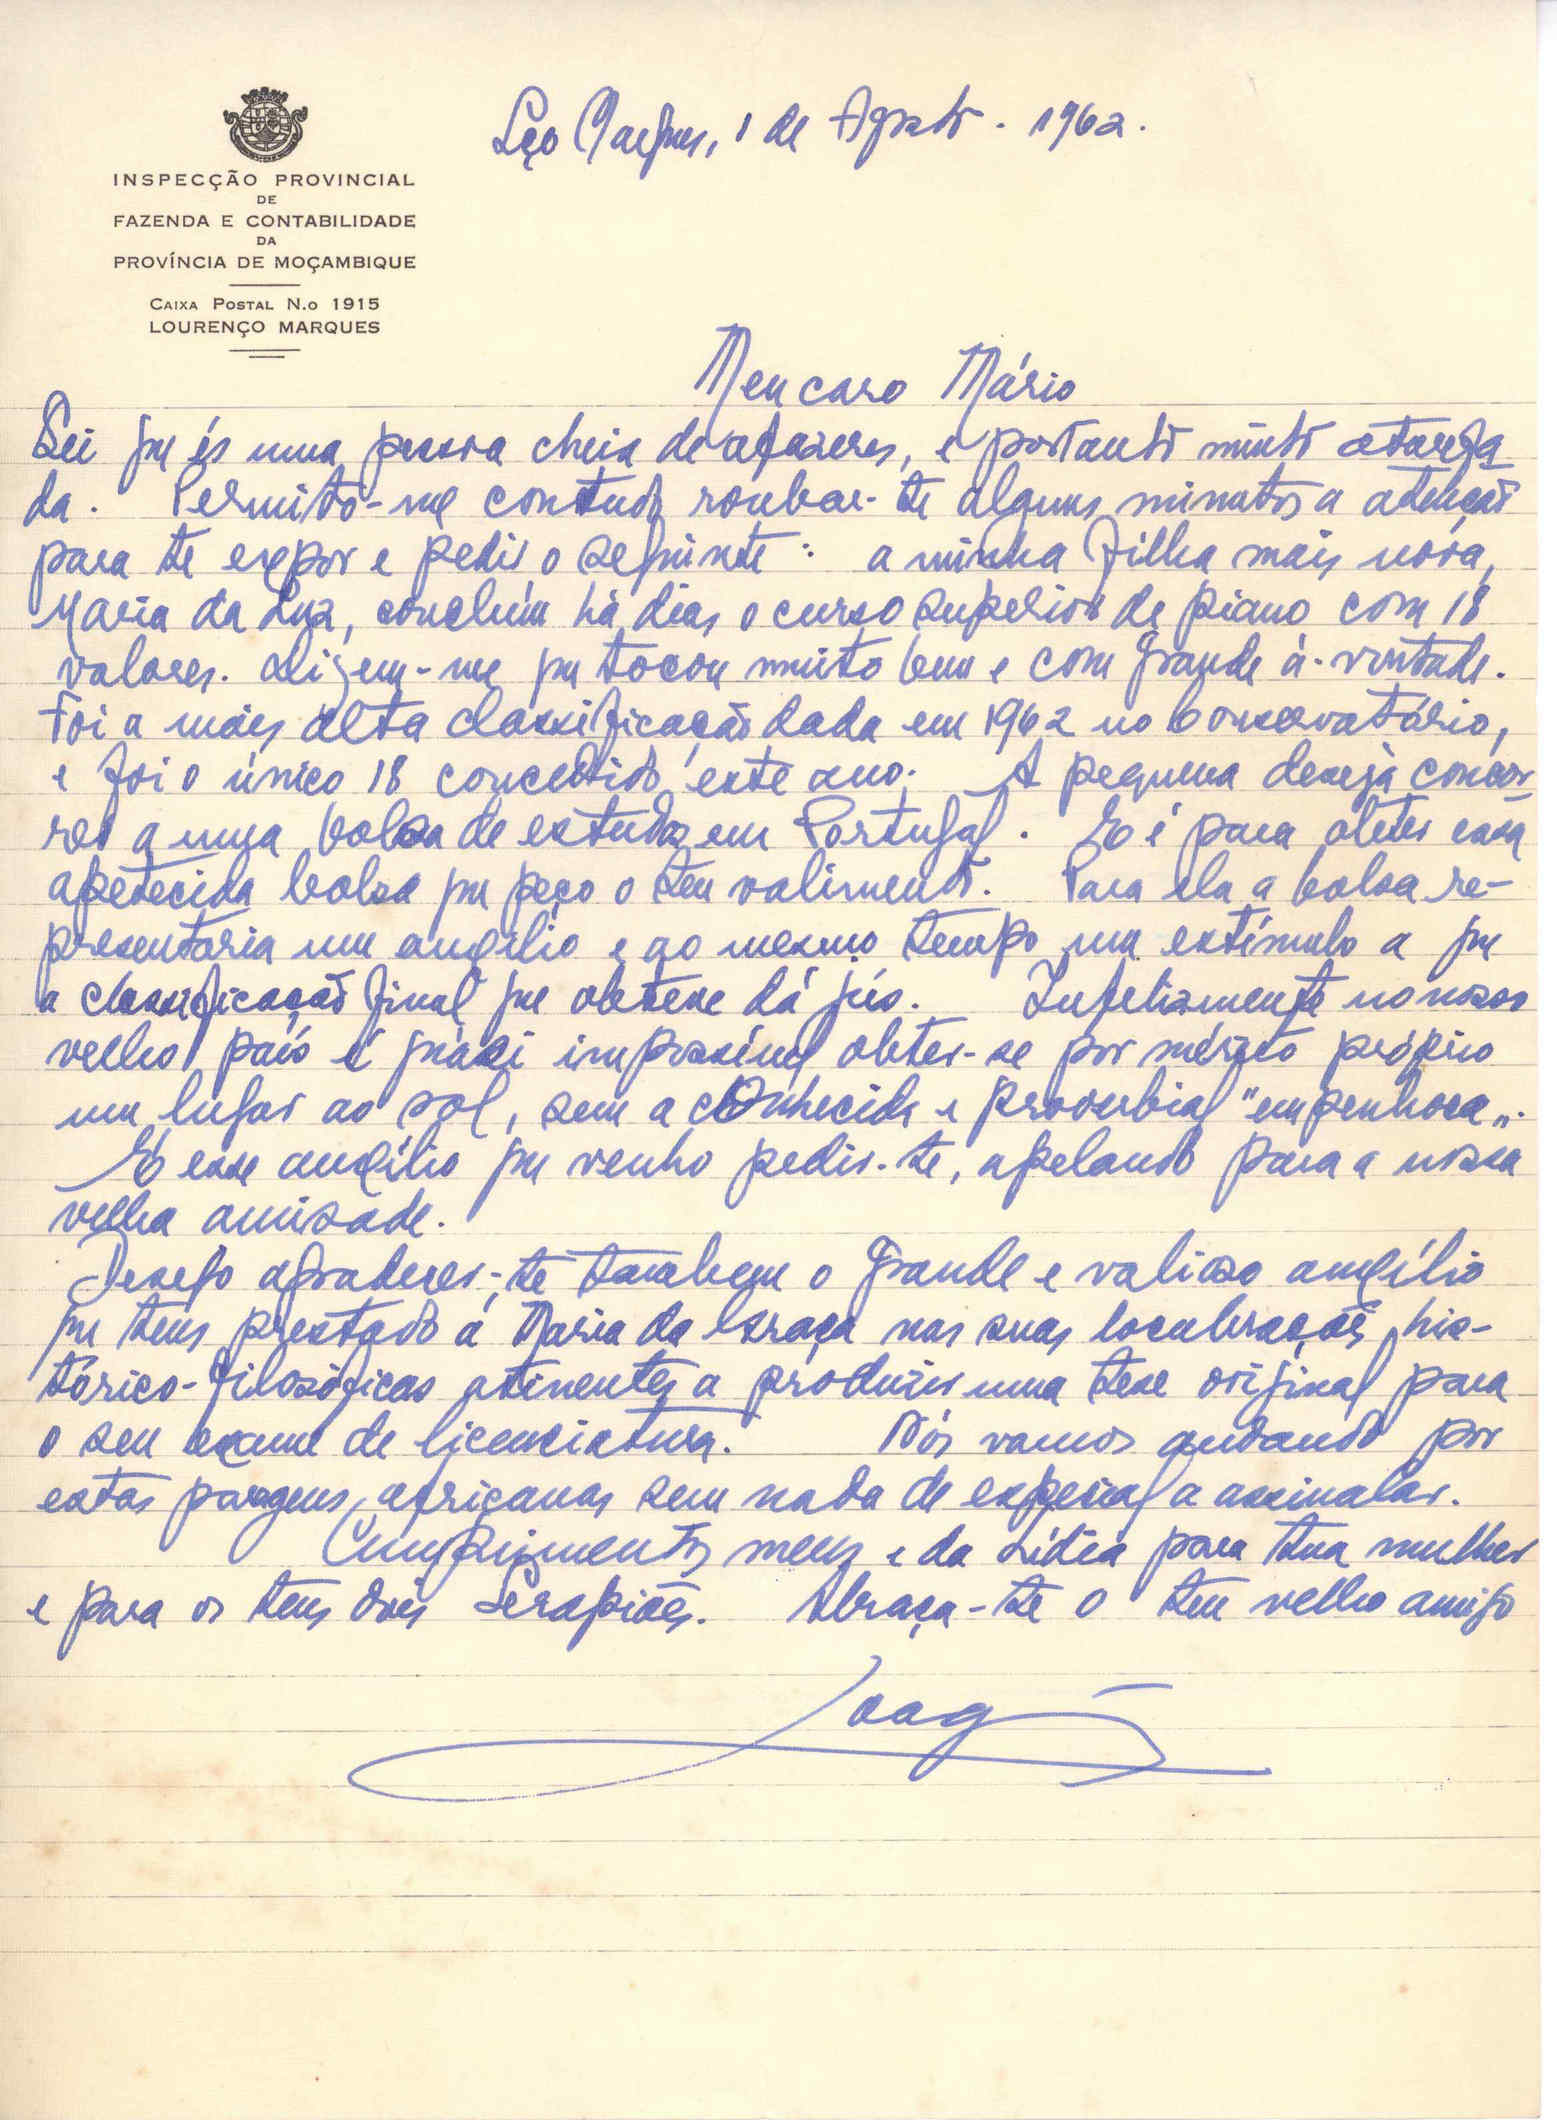 Lço Marques, 1 de Agosto. 1962.
INSPECÇÃO PROVINCIAL
DE
FAZENDA E CONTABILIDADE
DA
PROVÍNCIA DE MOÇAMBIQUE
CAIXA POSTAL N.o 1915
LOURENÇO MARQUES
Meu caro Mário
Sei que és uma pessoa cheia de afazeres, e portanto muito atarefa
da. Permito-me contudo roubar-te alguns minutos a atenção
para te expor e pedir o seguinte: a minha filha mais nova,
Maria da Luz, concluíu há dias o curso superior de piano com 18
valores. Dizem-me que tocou muito bem e com grande à-vontade.
Foi a mais alta classificação dada em 1962 no Conservatório,
e foi o único 18 concedido este ano. A pequena deseja concor
rer a uma bolsa de estudos em Portugal. E é para obter essa
apetecida bolsa que peço o teu valimento. Para ela a bolsa re-
presentaria um auxílio e ao mesmo tempo um estímulo a que
a classificação final que obteve dá jús. Infelizmente no nosso
velho país é quási impossível obter-se por mérito próprio
um lugar ao sol, sem a conhecida e proverbial "empenhoca".
É esse auxílio que venho pedir-te, apelando para a nossa
velha amizade.
Desejo agradecer-te tambem o grande e valioso auxílio
que tens prestado á Maria da Graça nas suas locubrações his-
tórico-filosóficas atinentes a produzir uma tese original para
o seu exame de licenciatura. Nós vamos andando por
estas paragens africanas sem nada de especial a assinalar.
Cumprimentos meus e da Lídia para tua mulher
e para os teus dois Serapiões. Abraça-te o teu velho amigo